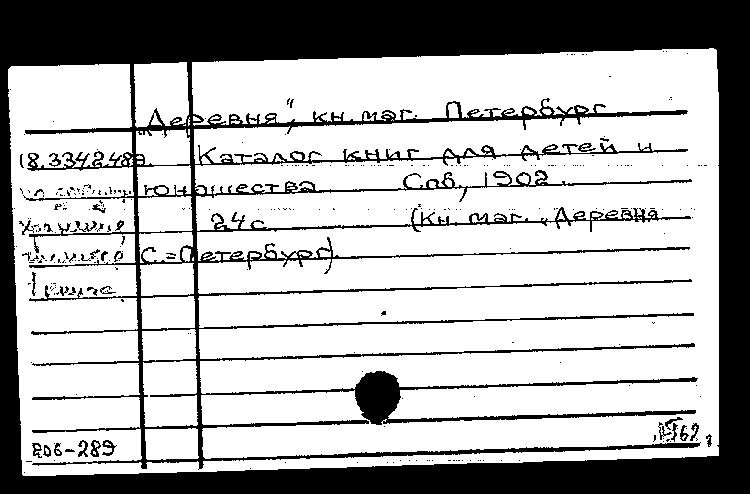 „Деревня", кн. маг. Петербург
18.334248а. Каталог книг для детей и
юношества Спб., 1902.
24 с (Кн. маг. „Деревня
С.=Петербург)